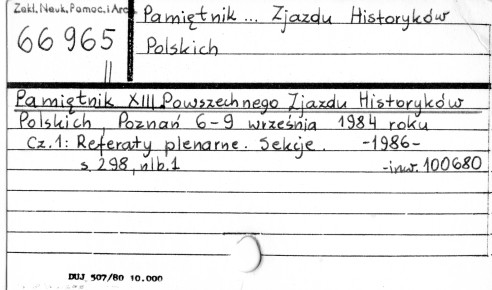 Zakł. Nauk. Pomoc. i Arch.
66965
II
Pamiętnik ... Zjazdu Historyków
Polskich
Pamiętnik XIII Powszechnego Zjazdu Historyków
Polskich, Poznań 6-9 września 1984 roku
Cz.1: Referaty plenarne. Sekcje. -1986-
s. 298, nlb.1 -inw. 100680
DUJ 507/80 10.000